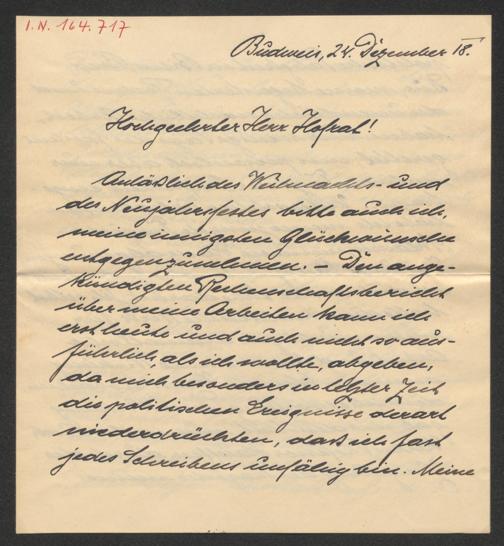 I.N. 164.717
Budweis, 24. Dezember 18.
Hochgeehrter Herr Hofrat!
Anläßlich des Weihnachts- und
des Neujahrsfestes bitte auch ich,
meine innigsten Glückwünsche
entgegenzunehmen. – Den ange-
kündigten Rechenschaftsbericht
über meine Arbeiten kann ich
erst heute und auch nicht so aus-
führlich, als ich wollte, abgeben,
da mich besonders in letzter Zeit
die politischen Ereignisse derart
niederdrückten, daß ich fast
jedes Schreibens unfähig bin. Meine